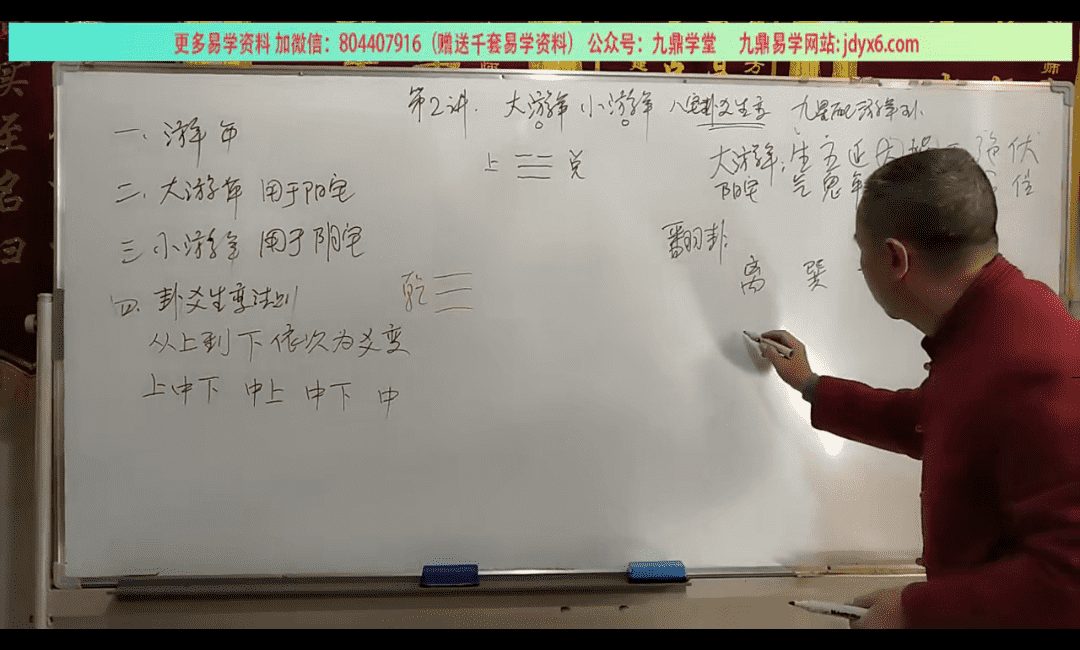 更多易学资料 加微信：804407916（赠送千套易学资料） 公众号：九鼎学堂 九鼎易学网站:jdyx6.com
至
名
曰
师
第2讲. 大游年 小游年 八宫卦爻生变
一. 游年
二. 大游年 用于阳宅
三. 小游年 用于阴宅
四. 卦爻生变法则
从上到下依次为爻变
上中下 中上 中下 中
上 兑
乾
大游年: 生 五 延 伏
阳宅 气 鬼 年 位
翻卦:
离 巽